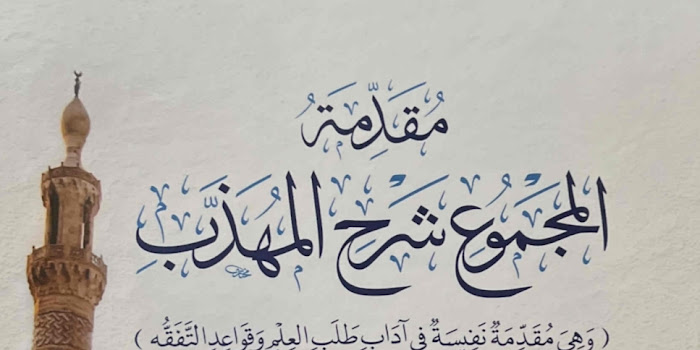 مُقَدِّمَةُ
المَجْمُوعِ شَرْحِ المُهَذَّبِ
( وَهِيَ مُقَدِّمَةٌ نَفِيسَةٌ فِي آدَابِ طَلَبِ العِلْمِ وَقَوَاعِدِ التَّفَقُّه )